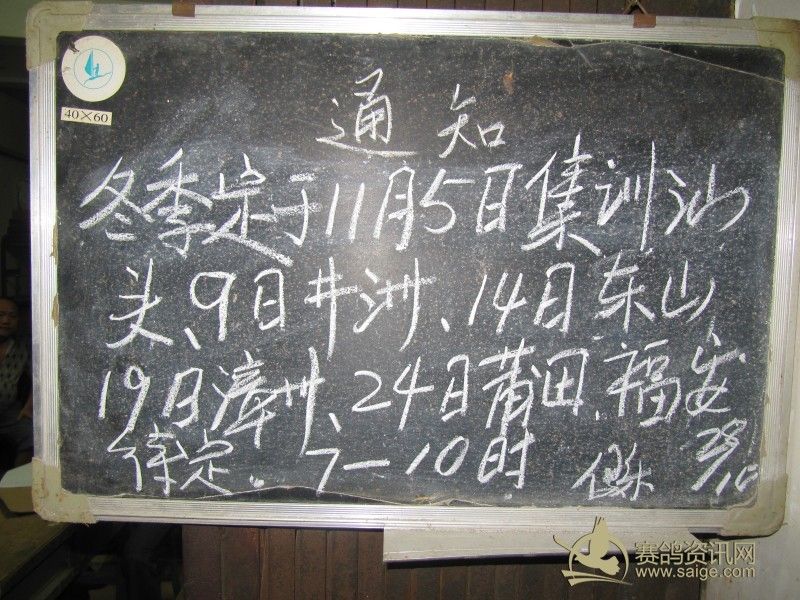 40×60
通知
冬季定于11月5日集训汕
头、9日井洲、14日东山
19日漳州、24日莆田、福安
待定.7—10时
28/10
赛鸽资讯网
www.saige.com